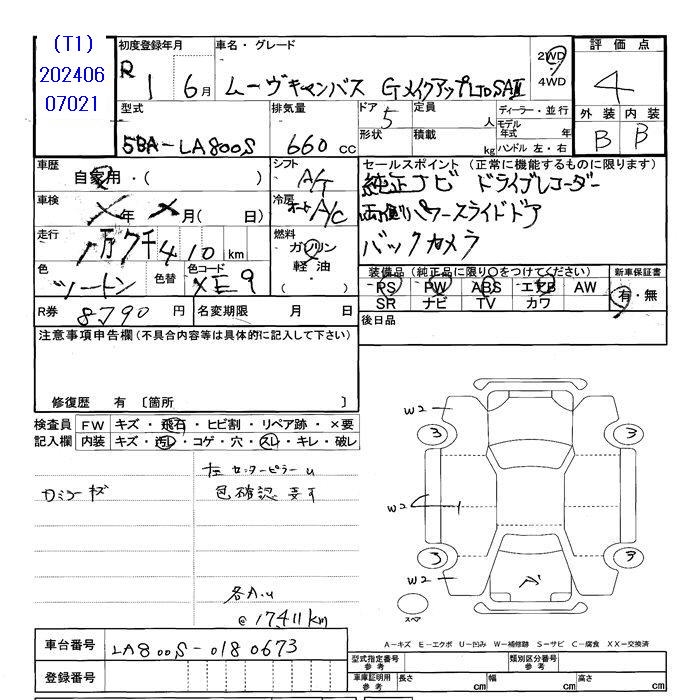 (T1)
202406
07021
初度登録年月
R 1 6月
車名・グレード
ムーヴキャンバス GメイクアップLTDSAⅢ
2WD
4WD
評価点
4
外装 内装
B B
型式
5BA-LA800S
排気量
660 cc
ドア 5
形状
定員 人
積載 kg
ディーラー・並行
モデル年式 年
ハンドル 左・右
車歴
自家用・( )
シフト
A/T
車検
X年 X月( 日)
冷房
A/C
走行
1万7千410km
燃料
ガソリン
軽油・
( )
色
ツートン
色替
色コード
XE9
R券 8790 円
名変期限 月 日
セールスポイント (正常に機能するものに限ります)
純正ナビ ドライブレコーダー
両側パワースライドドア
バックカメラ
装備品 (純正品に限り○をつけてください)
PS PW ABS エアB AW
SR ナビ TV カワ
新車保証書
有・無
後日品
注意事項申告欄(不具合内容等は具体的に記入して下さい)
修復歴 有 〔箇所 〕
検査員
記入欄
FW キズ・飛石・ヒビ割・リペア跡・×要
内装 キズ・汚レ・コゲ・穴・スレ・キレ・破レ
左センターピラーu
色確認要す
各A.u
@17411km
W2
3 3
W2
W2
3
スペア
A-キズ E-エクボ U-凹み W-補修跡 S-サビ C-腐食 XX-交換済
車台番号 LA800S-0180673
登録番号
型式指定番号
参考
類別区分番号
参考
車庫証明用
参考
長さ cm 幅 cm 高さ cm